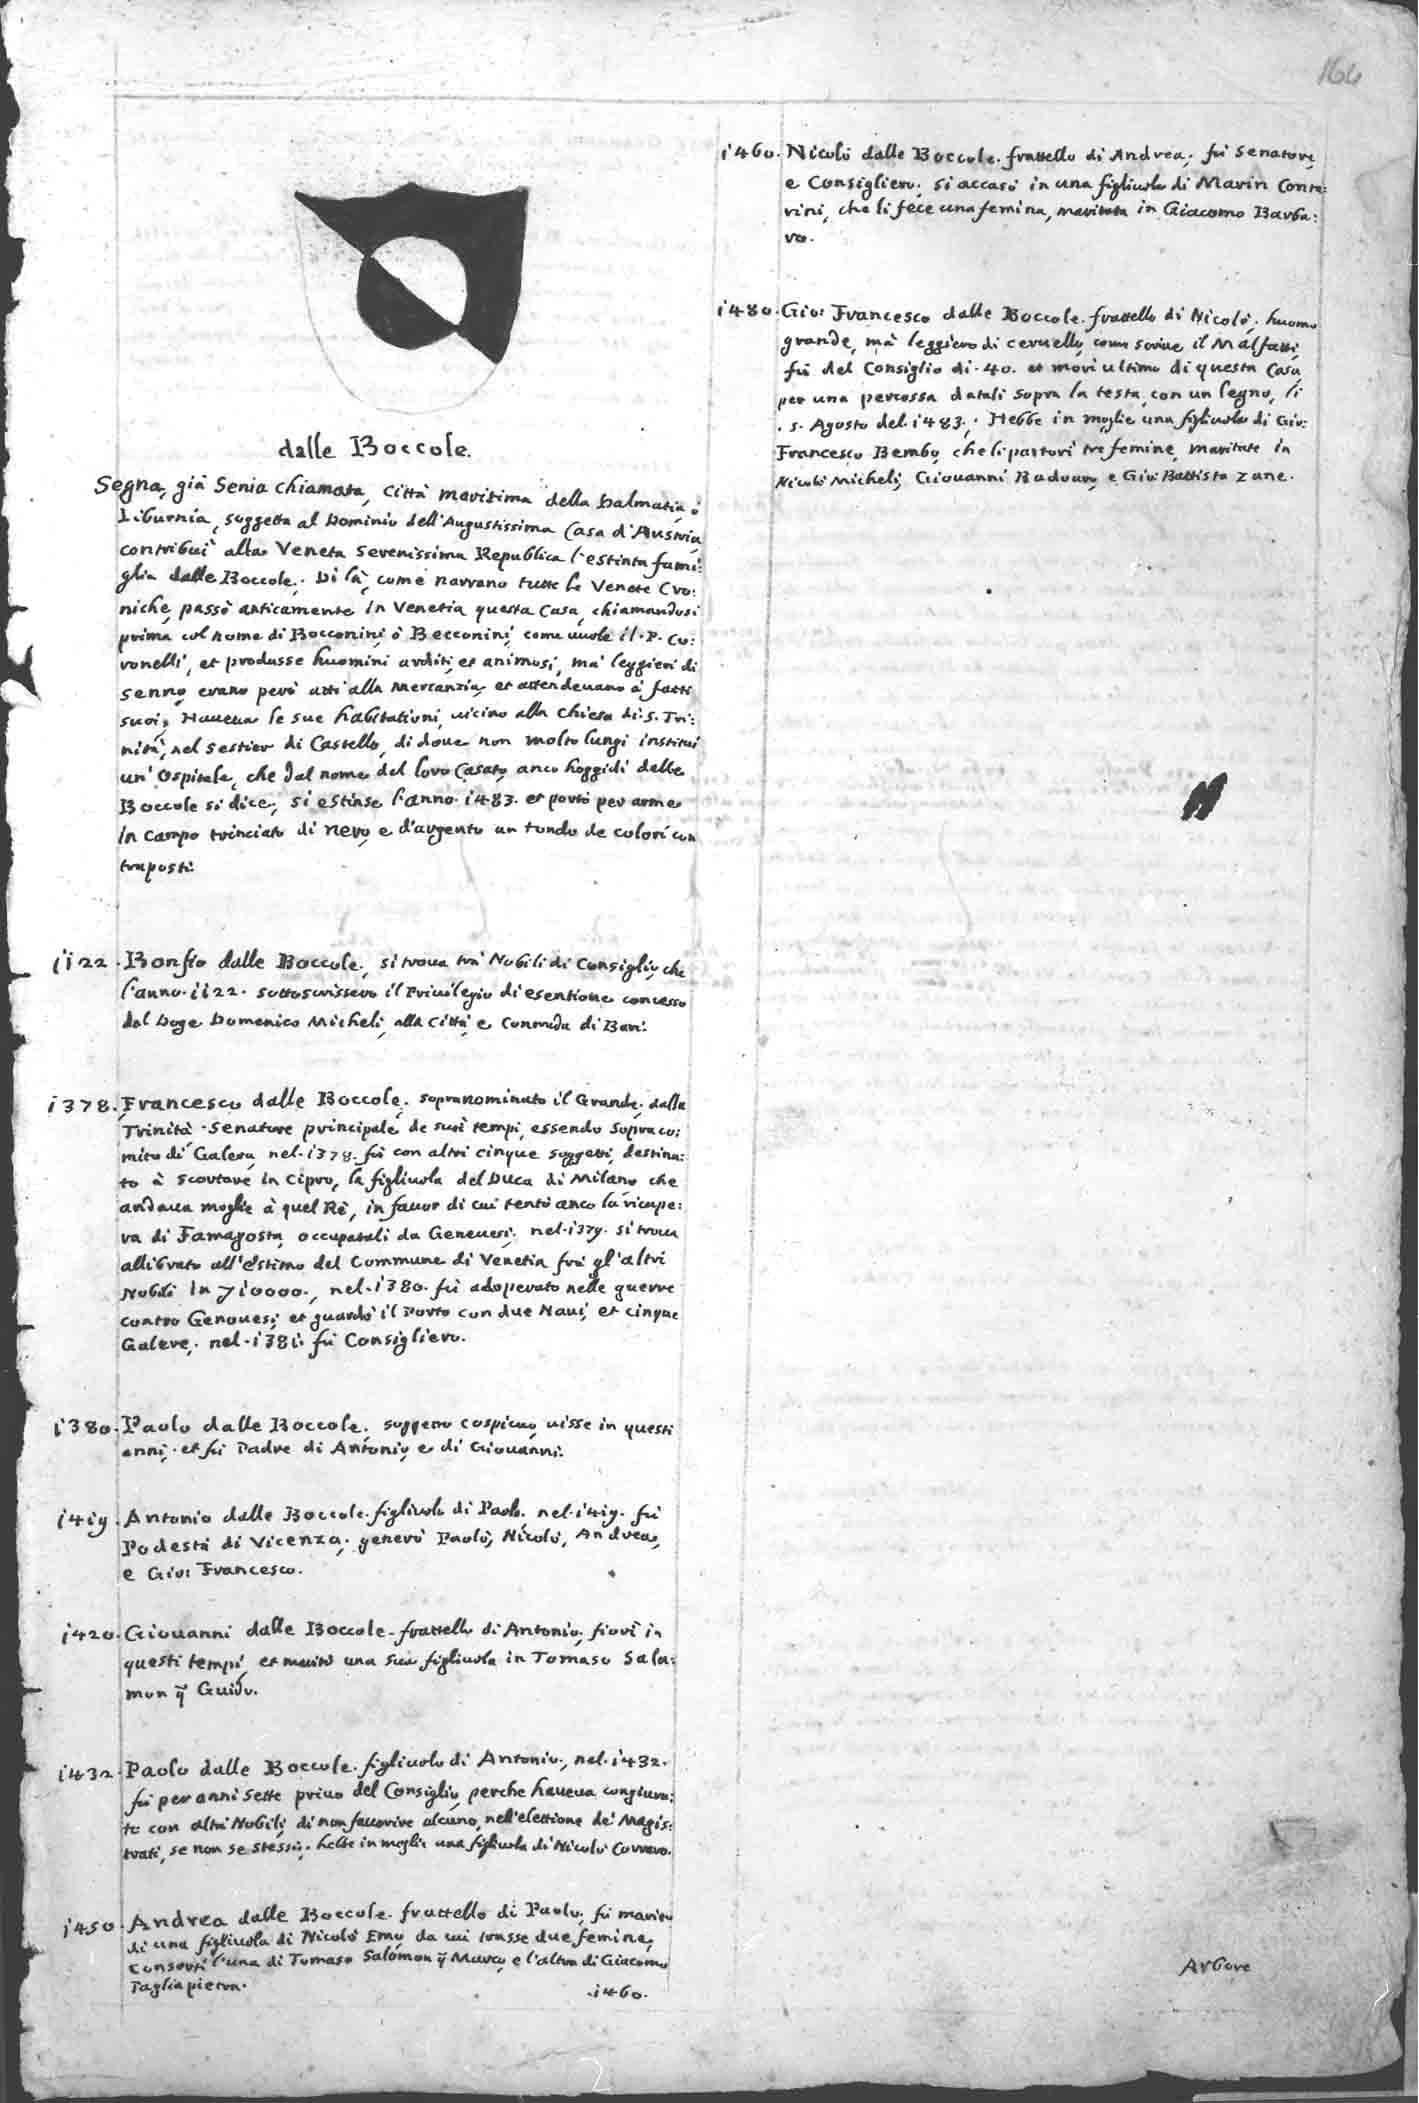 166
dalle Boccole.
Segna, già Senia chiamata, Città maritima della Dalmatia, ò
Liburnia, soggetta al Dominio dell'Augustissima Casa d'Austria,
contribuì alla Veneta Serenissima Republica l'estinta fami:
glia dalle Boccole. Di là, come narrano tutte le Venete Cro:
niche, passò anticamente in Venetia questa Casa, chiamandosi
prima col nome di Bocconini, ò Becconini, come vuole il P. Co:
ronelli, et produsse huomini arditi, et animosi, mà leggieri di
senno, erano però atti alla Mercanzia, et attendevano à fatti
suoi, Haueua le sue habitationi, uicino alla Chiesa di S. Tri:
nità, nel Sestier di Castello, di doue non molto lungi instituì
un' Ospitale, che dal nome del loro Casato, anco hoggidì delle
Boccole si dice, si estinse l'anno 1483. et portò per arme
in campo trinciato di nero, e d'argento un tondo de colori con
traposti.
1122. Bonfio dalle Boccole, si troua trà Nobili di Consiglio, che
l'anno 1122. sottoscrissero il Priuilegio di esentione concesso
dal Doge Domenico Micheli, alla Città, e Contrada di Bari.
1378. Francesco dalle Boccole, sopranominato il Grande, dalla
Trinità. Senatore principale de suoi tempi, essendo Sopraco:
mito di Galera, nel 1378. fù con altri cinque soggetti, destina:
to à scortare in Cipro, la figliuola del Duca di Milano che
andaua moglie à quel Rè, in fauor di cui tentò anco la ricupe:
ra di Famagosta, occupatali da Genouesi, nel 1379. si troua
allibrato all'estimo del Commune di Venetia frà gl'altri
Nobili in 10000., nel 1380. fù adoperato nelle guerre
contro Genouesi, et guardò il Porto con due Naui, et cinque
Galere, nel 1381. fù Consigliero.
1380. Paolo dalle Boccole, soggetto cospicuo, uisse in questi
anni, et fù Padre di Antonio, e di Giouanni.
1419. Antonio dalle Boccole figliuolo di Paolo, nel 1419. fù
Podestà di Vicenza, generò Paolo, Nicolò, Andrea,
e Gio: Francesco.
1420. Giouanni dalle Boccole frattello di Antonio, fiorì in
questi tempi, et maritò una sua figliuola in Tomaso Sala:
mon q̃ Guido.
1432. Paolo dalle Boccole figliuolo di Antonio, nel 1432.
fù per anni sette priuo del Consiglio, perche haueua congiura:
to con altri Nobili, di non fauorire alcuno, nell'elettione de' Magis:
trati, se non se stessi, hebbe in moglie una figliuola di Nicolò Corraro.
1450. Andrea dalle Boccole frattello di Paolo, fù marito
di una figliuola di Nicolò Emo, da cui trasse due femine,
consorti l'una di Tomaso Salomon q̃ Marco, e l'altra di Giacomo
Tagliapietra.
1460.
1460. Nicolò dalle Boccole frattello di Andrea, fù Senatore,
e Consigliero, si accasò in una figliuola di Marin Conta:
rini, che li fece una femina, maritata in Giacomo Barba:
ro.
1480. Gio: Francesco dalle Boccole frattello di Nicolò, huomo
grande, mà leggiero di ceruello, come scriue il Malfatti,
fù del Consiglio di 40. et morì ultimo di questa Casa
per una percossa datali sopra la testa, con un legno, li
5. Agosto del 1483. Hebbe in moglie una figliuola di Gio:
Francesco Bembo, che li partorì tre femine, maritate in
Nicolò Micheli, Giouanni Badoaro, e Gio: Battista Zane.
Arbore